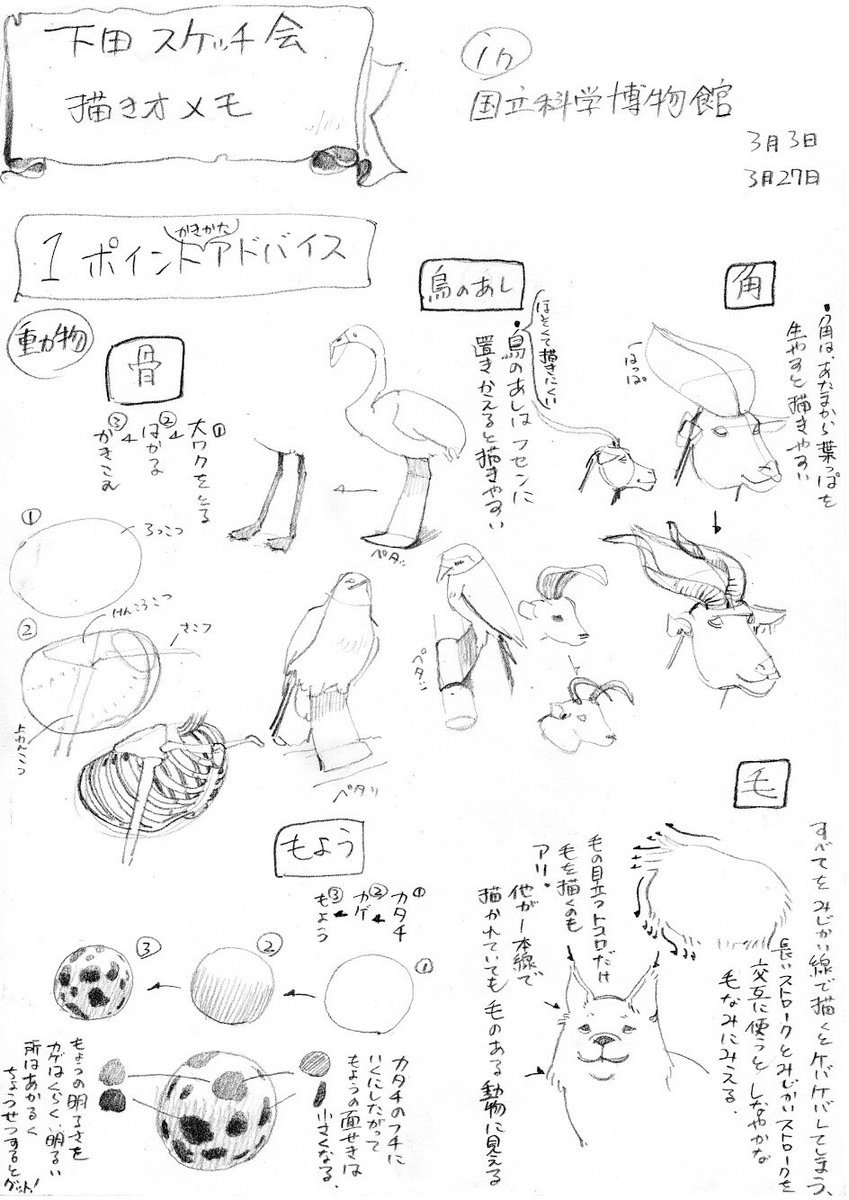 下田スケッチ会
描き方メモ
in
国立科学博物館
3月3日
3月27日
1ポイントアドバイス
かきかた
動物
骨
①大ワクをとる
②はかる
③かきこむ
①
ろっこつ
②
けんこうこつ
さこつ
じょわんこつ
鳥のあし
・鳥のあしはフセンに
置きかえると描きやすい
ほそくて描きにくい
ペタッ
ペタッ
ペタッ
角
・角はあたまから葉っぱを
生やすと描きやすい
はっぱ
もよう
①カタチ
②カゲ
③もよう
①
②
③
カタチのフチに
いくにしたがって
もようの面せきは
小さくなる。
もようの明るさを
カゲはくらく、明るい
所はあかるく
ちょうせつすると
グット!
毛
すべてをみじかい線で描くとケバケバしてしまう、
長いストロークとみじかいストロークを
交互に使うとしなやかな
毛なみにみえる。
毛の目立つトコロだけ
毛を描くのも
アリ。
他が1本線で
描かれていても毛のある動物に見える